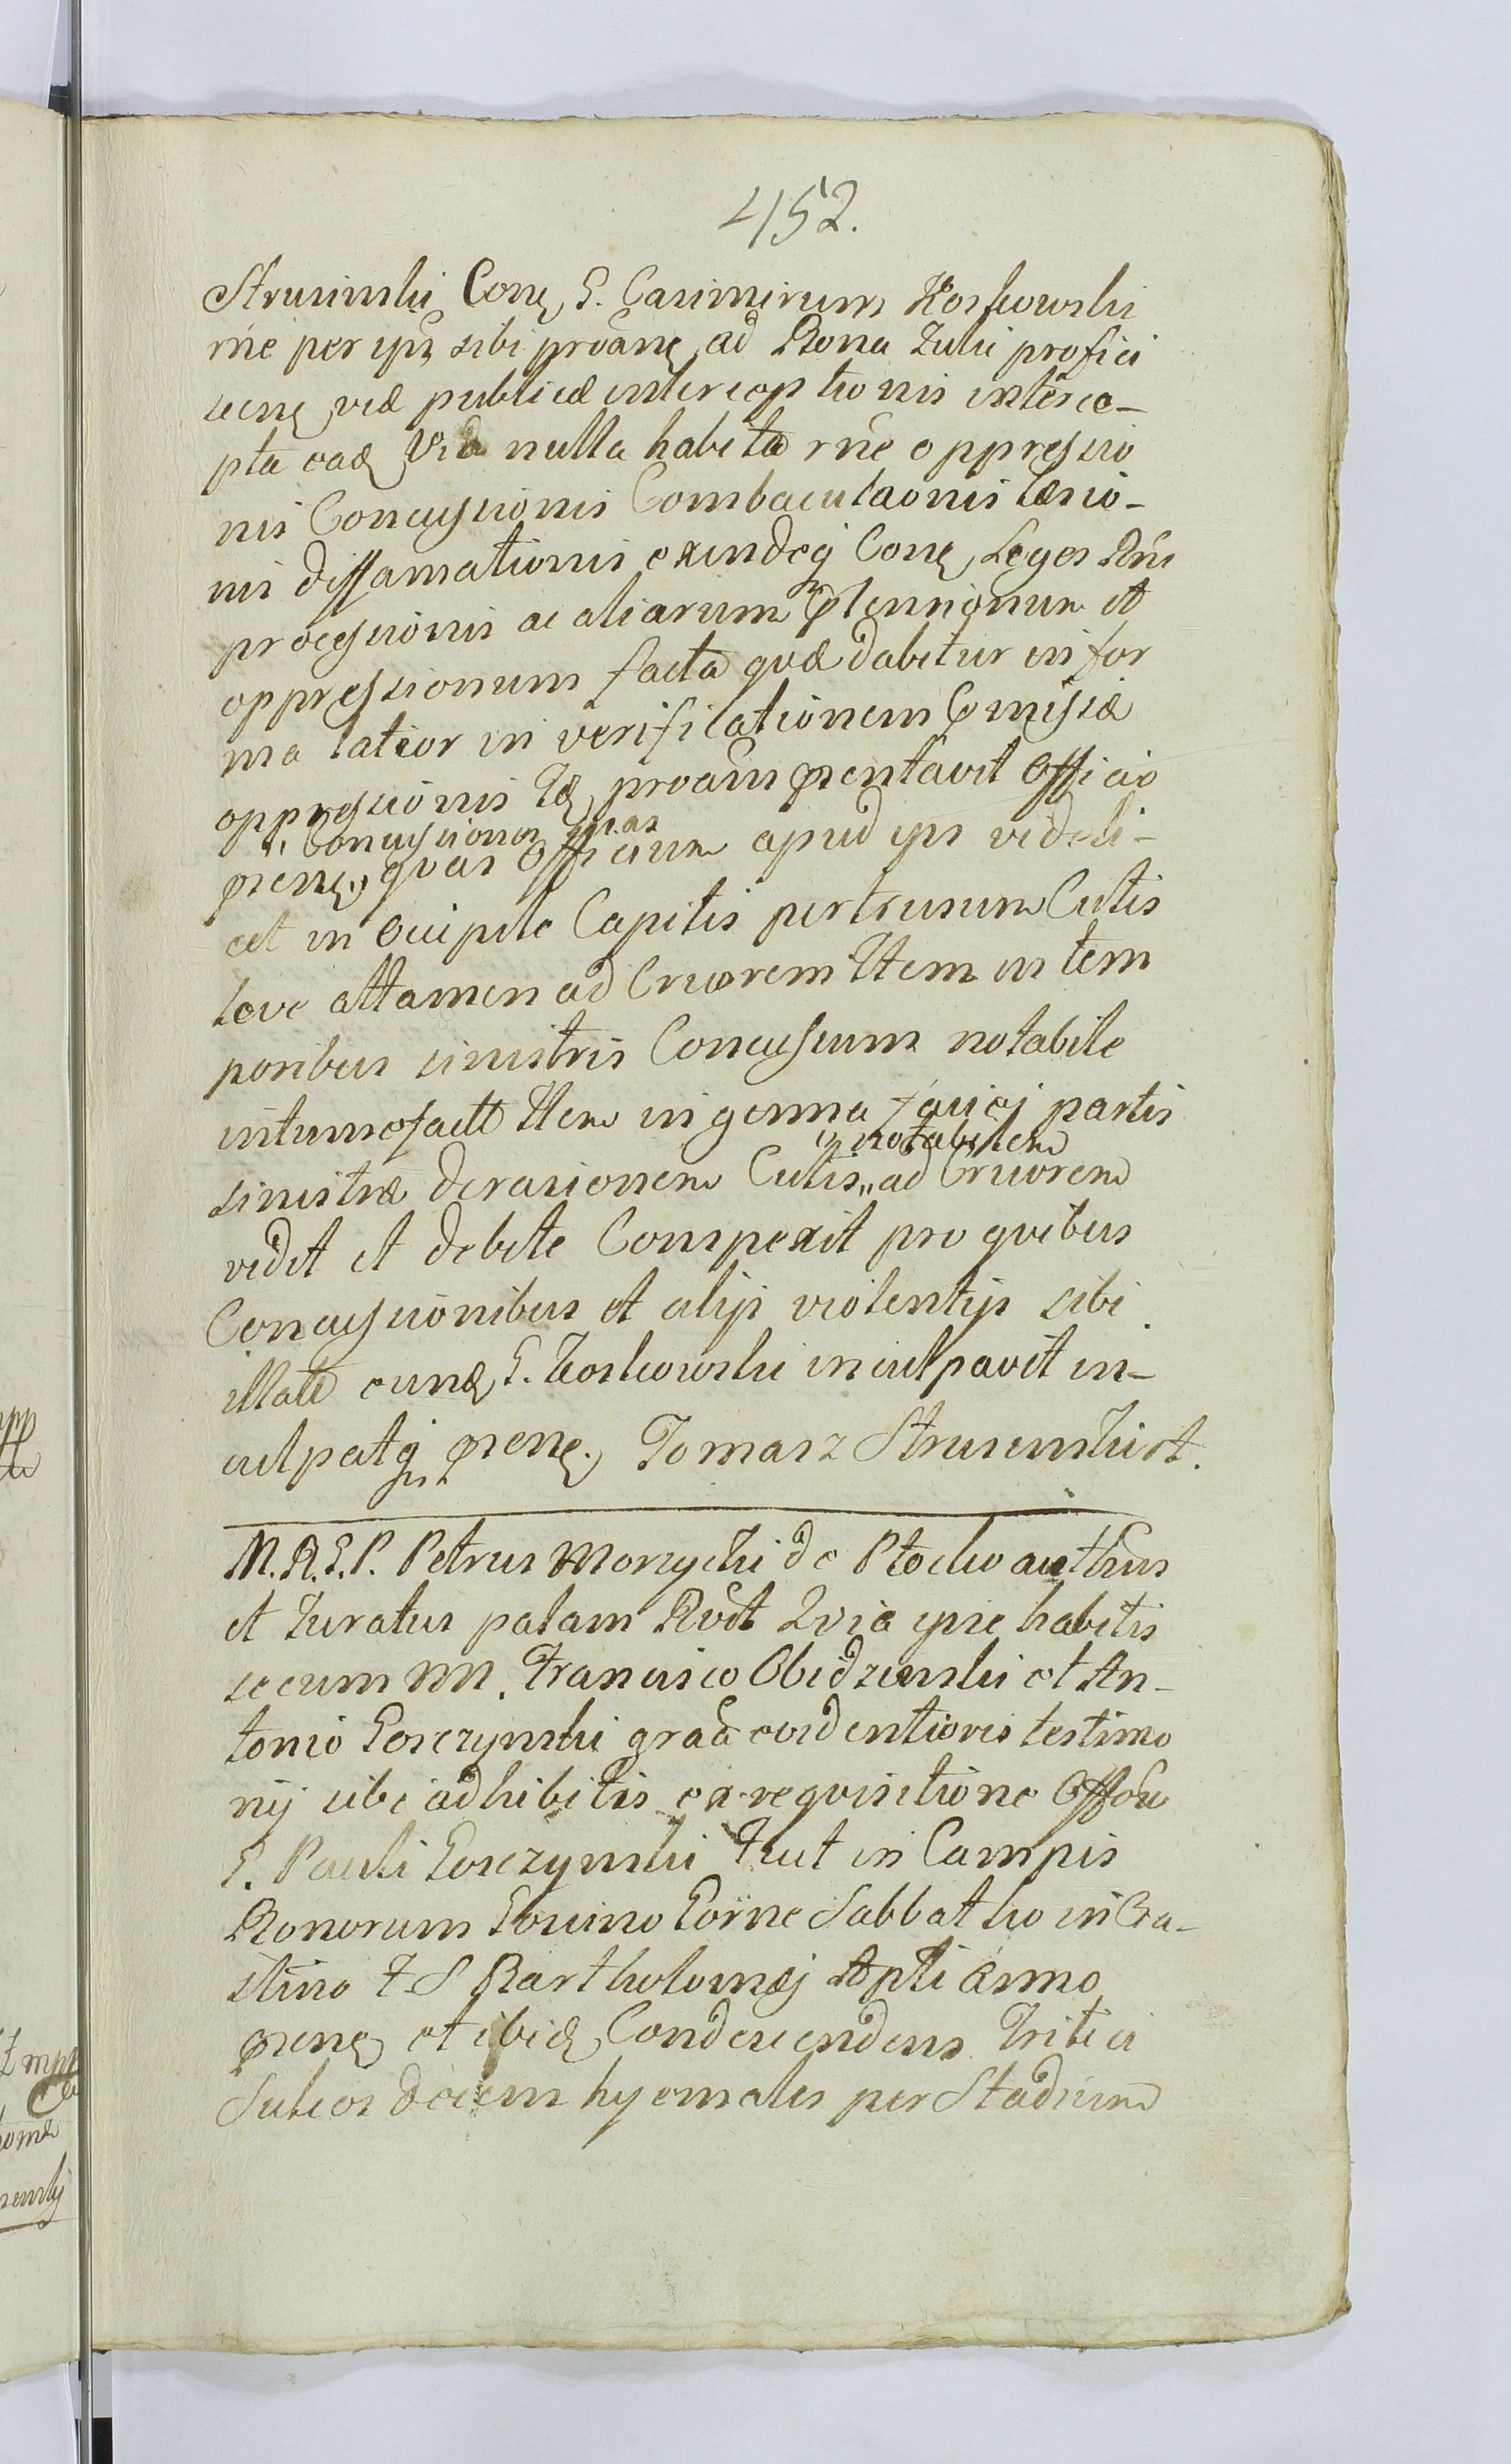 452.
Strusinski Conq G. Casimirum Koskowski
rne per ips sibi proanq ad Bona Zuki profici
scenq viæ publicæ interceptionis interce-
pta eadq Via nulla habita rne oppressio
nis Concussionis Combaculaonis læsio-
nis diffamationis exindeq Conq Leges Rni
processionis ac aliarum ptensionum et
oppressionum facta quæ dabitur in for
ma latior in verificationem pmissæ
oppressionis Idq proam pentavit Officio
" Concussiones suas
psenq, quas Officium apud ips videli-
cet in Occipite Capitis pertusum Cutis
leve attamen ad Cruorem Item in tem
poribus sinistris Concussum notabile
intumefacte Item in genna faciej partis
" notabilem
sinistræ derasionem Cutis " ad Cruorem
vidit et debite Conspexit pro quibus
Concussionibus et alijs violentijs sibi
illatis eundq G. Koskowski inculpavit in-
culpatq psenq. Tomasz Strusinski st.
M.R.G.P. Petrus Morycki de Plocko authus
et Juratus palam Rvdt Quia ipse habitis
secum NN. Francisco Obidzinski et An-
tonio Gosczynski graa evidentioris testimo
nij sibi adhibitis ex requisitione Offosu
G. Pauli Gosczynski fuit in Campis
Bonorum Gouino Gorne Sabbatho in Cra-
stino F S Bartholomæj Apli anno
psenq et ibidq Condescendens Tritici
Sulcos decem hyemales per Stadium